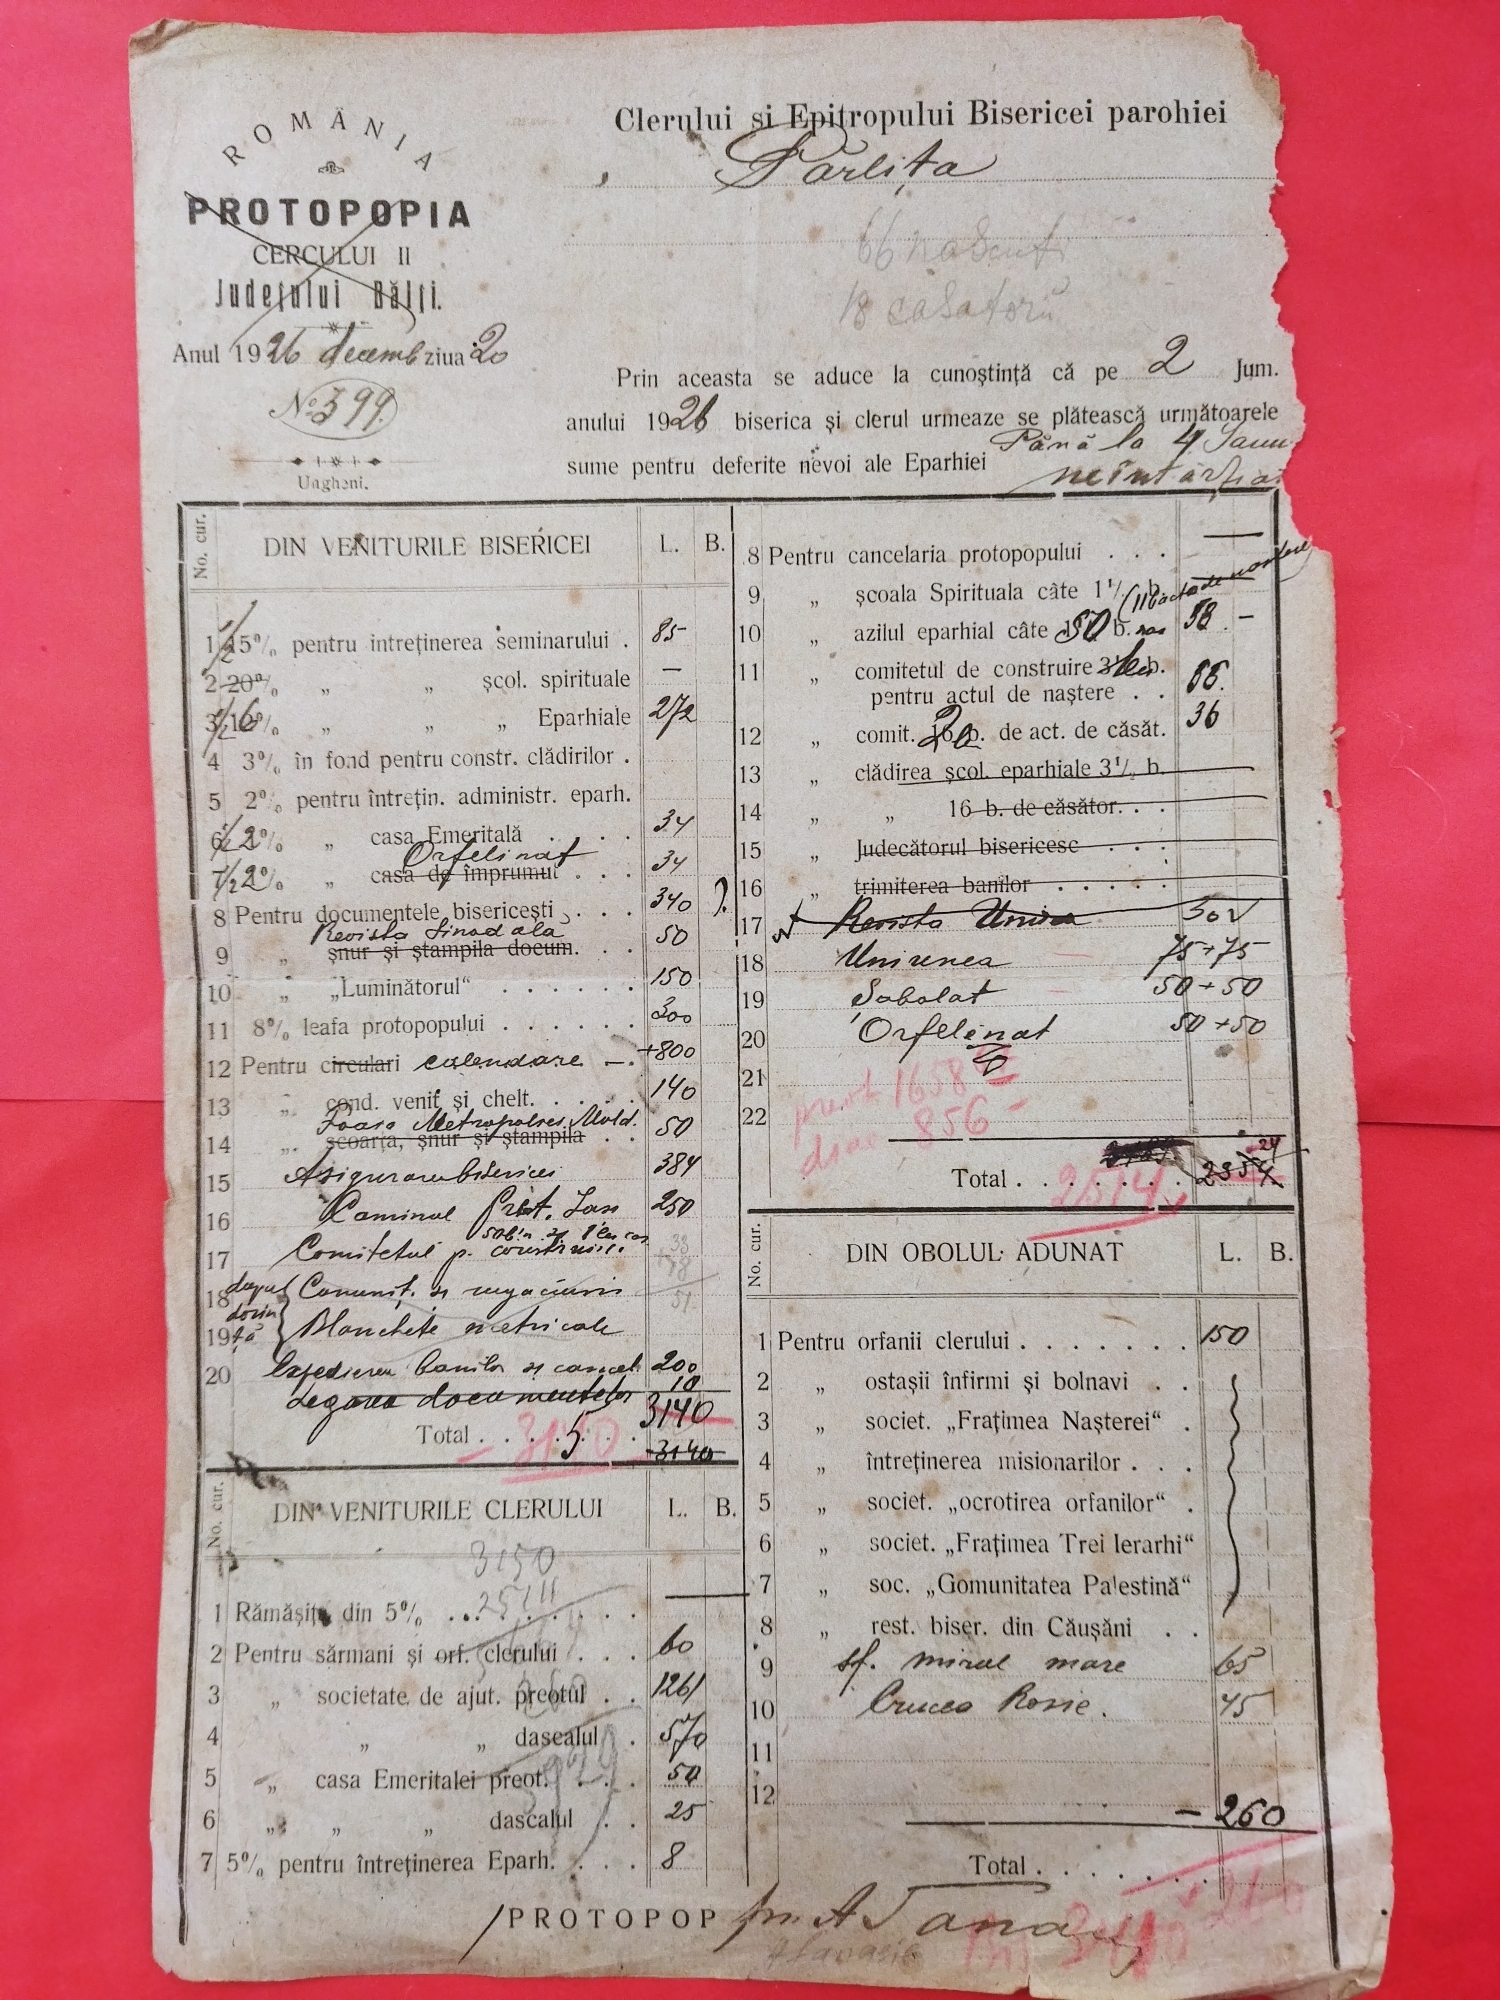 ROMÂNIA
PROTOPOPIA
CERCULUI II
Județului Bălți.
Anul 1926 decemb ziua 20
No 399
Ungheni.
Clerului si Epitropului Bisericei parohiei
Pârlița
66 nascuti
18 casatorii
Prin aceasta se aduce la cunoștință că pe 2 Jum.
anului 1926 biserica și clerul urmeaze se plătească următoarele
sume pentru deferite nevoi ale Eparhiei Până la 4 Ianu
neîntârzia
No. cur. DIN VENITURILE BISERICEI L. B.
1 1/2 15% pentru intreținerea seminarului . 85
2 20% „ „ școl. spirituale —
3 1/2 16% „ „ „ Eparhiale 272
4 3% în fond pentru constr. clădirilor .
5 2% pentru întrețin. administr. eparh.
6 1/2 2% „ casa Emeritală . . . . 34
Orfelinat
7 1/2 2% „ casa de împrumut . . . 34
8 Pentru documentele bisericești . . . 340
Revista Sinodala
9 „ șnur și ștampila docum. 50
10 „ „Luminătorul“ . . . . . . 150
11 8% leafa protopopului . . . . . . 300
12 Pentru circulari calendare — +800
13 „ cond. venit și chelt. . . . . 140
Foaso Metropoliei Mold.
14 „ scoarța, șnur și ștampila . . 50
15 Asigurarea bisericei 384
16 Caminul Preot. Iasi 250
17 Comitetul p. construire.
18 Comunit. si rugaciuni
dupa dorin ță
19 Blanchete metricale
20 Expedierea banilor si cancel. 200
Legarea documentelor 10
3140
Total . . . . . . 3140
3140
No. cur. DIN VENITURILE CLERULUI L. B.
3150
2514
1 Rămășița din 5% . . . . . . .
2 Pentru sărmani și orf. clerului . . . 60
3 „ societate de ajut. preotul . . 1261
4 „ „ dascalul . 570
5 „ casa Emeritalei preot. . . . 50
6 „ „ „ dascalul . . 25
7 5% pentru întreținerea Eparh. . . . 8
8 Pentru cancelaria protopopului . . . —
9 „ școala Spirituala câte 1 1/2 b.
10 „ azilul eparhial câte 50 b. nas 58 —
11 „ comitetul de construire 3 1/2 b.
pentru actul de naștere . . 66.
12 „ comit. 16 b. de act. de căsăt. 36
13 „ clădirea școl. eparhiale 3 1/2 b.
14 „ „ 16 b. de căsător. . .
15 „ Judecătorul bisericesc . . .
16 „ trimiterea banilor . . . . .
17 Revista Unirea 50
18 Unirenea 75+75
19 Sobolat 50+50
20 Orfelinat 50+50
21
22
preot 1658
diac 856 —
Total . . . . . . . 2354
2514
No. cur. DIN OBOLUL ADUNAT L. B.
1 Pentru orfanii clerului . . . . . . . 150
2 „ ostașii înfirmi și bolnavi . .
3 „ societ. „Frațimea Nașterei“ .
4 „ întreținerea misionarilor . . .
5 „ societ. „ocrotirea orfanilor“ .
6 „ societ. „Frațimea Trei Ierarhi“
7 „ soc. „Gomunitatea Palestină“
8 „ rest. biser. din Căușăni . .
9 sf. mirul mare 65
10 Crucea Rosie. 45
11
12
— 260
Total . . . . . . .
260
PROTOPOP